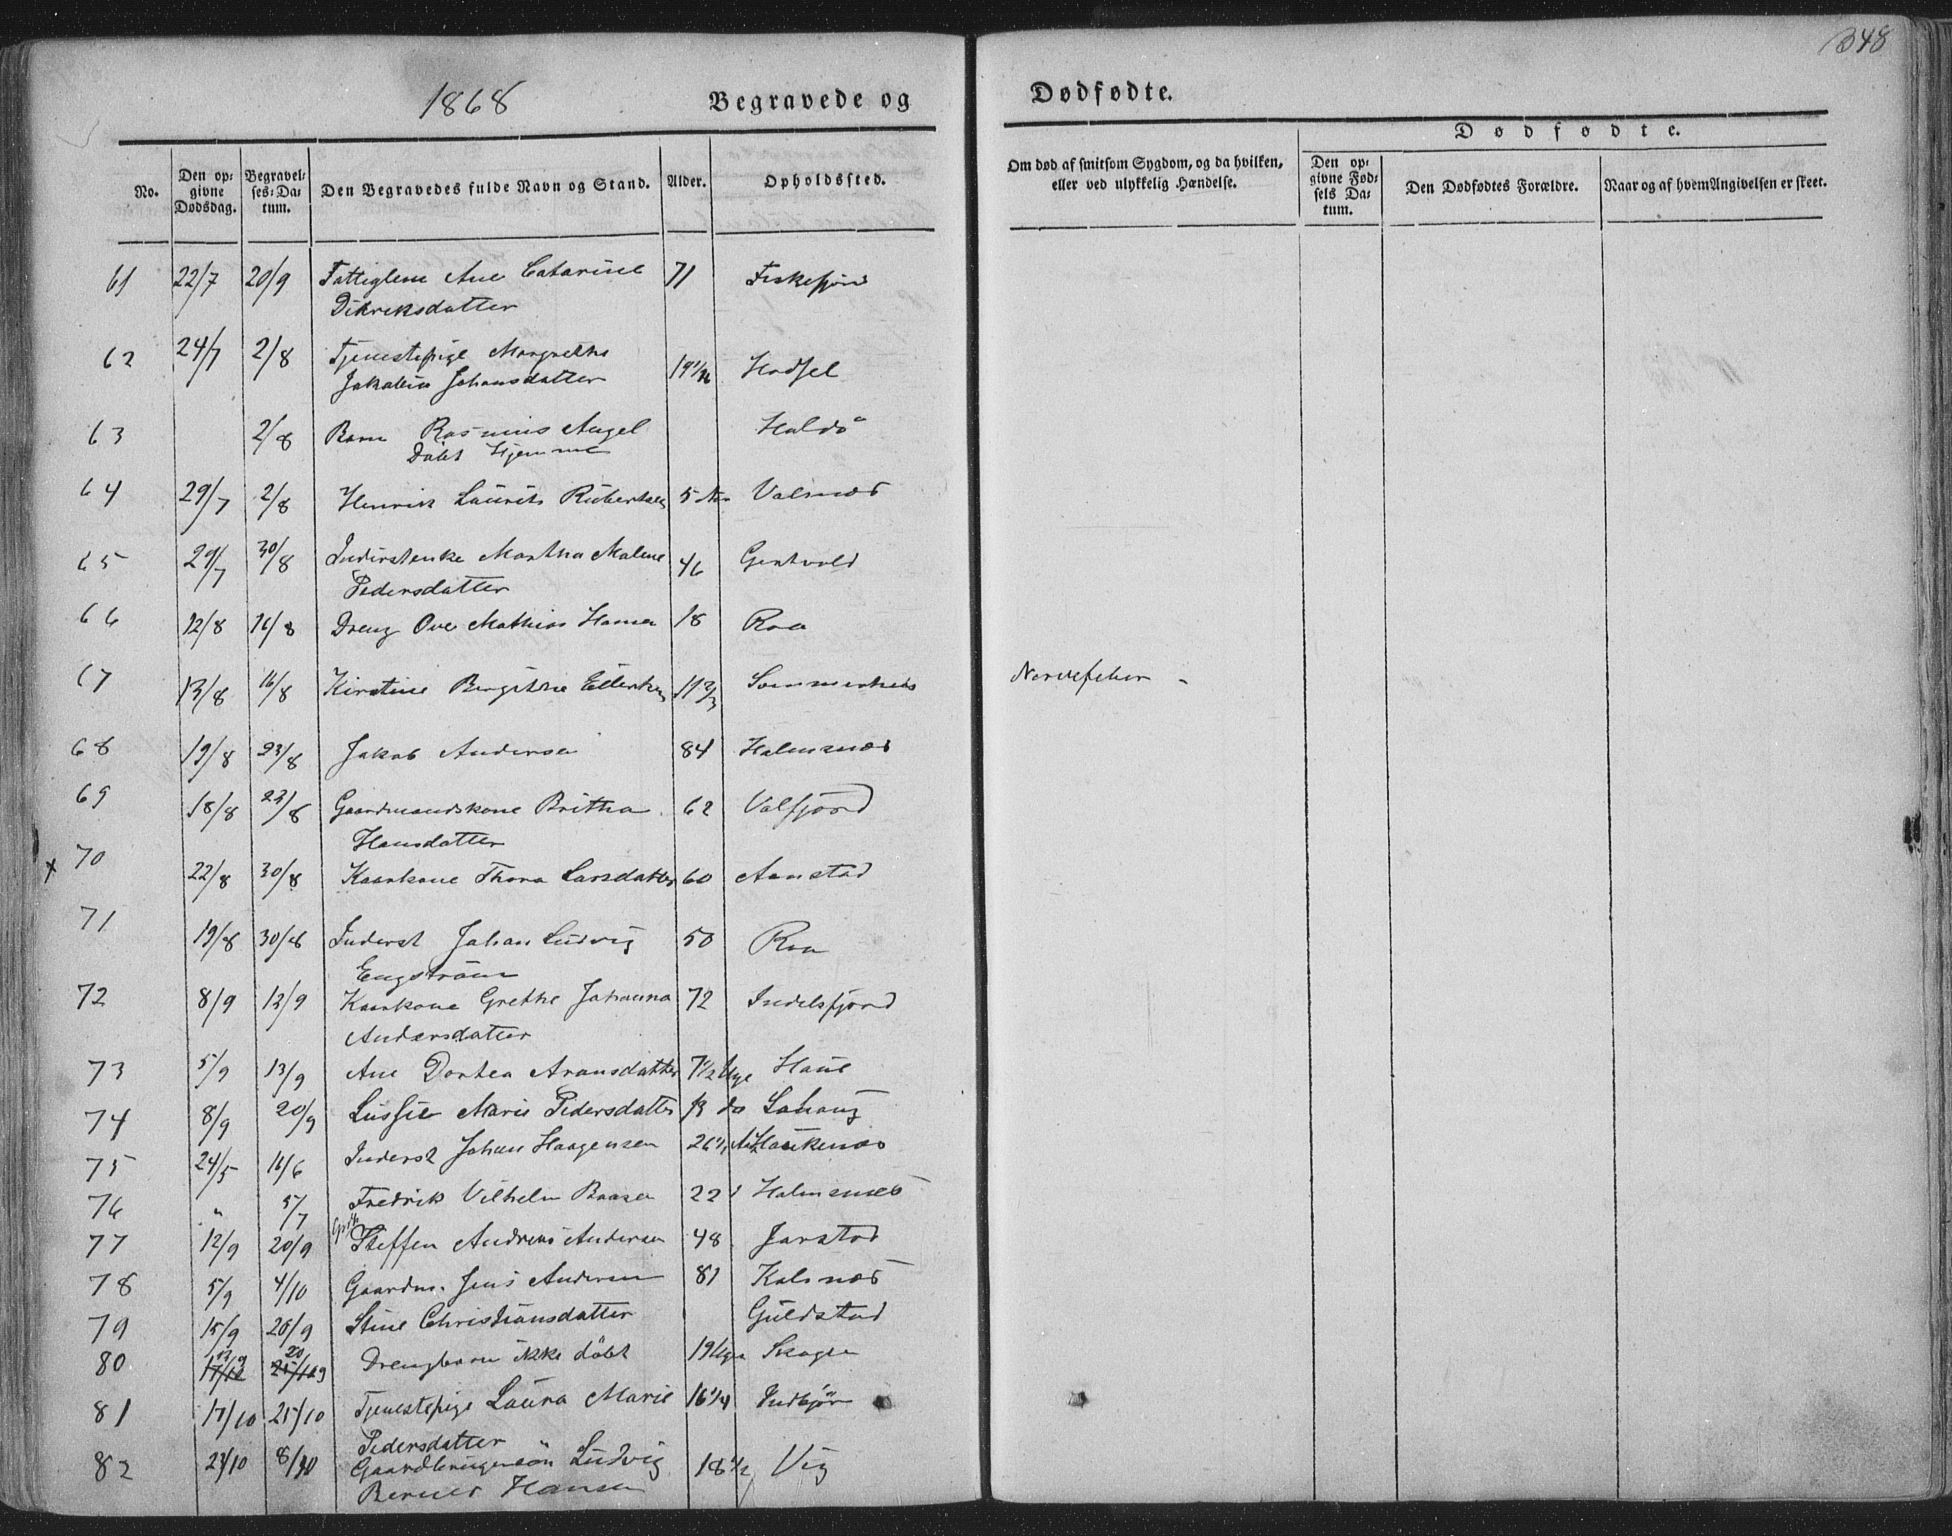 348
1868 Begravede og Dødfødte.
Dødfødte.
No.
Den opgivne Dødsdag.
Begravelses-Datum.
Den Begravedes fulde Navn og Stand.
Alder.
Opholdssted.
Om død af smitsom Sygdom, og da hvilken, eller ved ulykkelig Hændelse.
Den opgivne Fødsels Datum.
Den Dødfødtes Forældre.
Naar og af hvem Angivelsen er skeet.
61 22/7 20/9 Fattiglem Ane Catarine 71 Fiskefjord
Dikriksdatter
62 24/7 2/8 Tjenestepige Margrethe Hadsel
Johansdatter
63 2/8 Barn Rasmus Angel
Døbt Hjemme
64 29/7 2/8 Henrik Laurits 5 Valsnæs
65 29/7 30/8 Martha Malene 46
Pedersdatter
66 12/8 16/8 Dreng Ove Mathias 18 Raa
67 13/8 16/8 Kirstine Bergithe 11 2/3 Nervefeber
68 19/8 23/8 Jakob Andersen 84 Halmsnæs
69 18/8 23/8 Gaardmandskone Britha 62 Valfjord
Hansdatter
x 70 22/8 30/8 Kaarkone Thora Larsdatter 60
71 19/8 30/8 Inderst Johan Ludvig 50 Raa
Engstrøm
72 8/9 13/9 Kaarkone Grethe Johanna 72 Indelsfjord
Andersdatter
73 5/9 13/9 Ane Dortea Aronsdatter 7 1/2 Uge
74 8/9 20/9 Marie Pedersdatter do
75 24/5 16/6 Inderst Johan Haagensen Haukenæs
76 " 5/7 Fredrik Vilhelm 22 Halmsnæs
77 12/9 20/9 Steffen Andreas Andersen 48 Jarstad
78 5/9 4/10 Gaardm. Jens Andersen 81 Kalsnæs
79 15/9 20/9 Stine Christiansdatter Guldstad
80 20 Drengbarn ikke døbt
81 17/10 25/10 Tjenestepige Laura Marie 16 1/4
Pedersdatter
82 23/10 Gaardbrugersøn Ludvig 18 1/2 Vig
Hansen